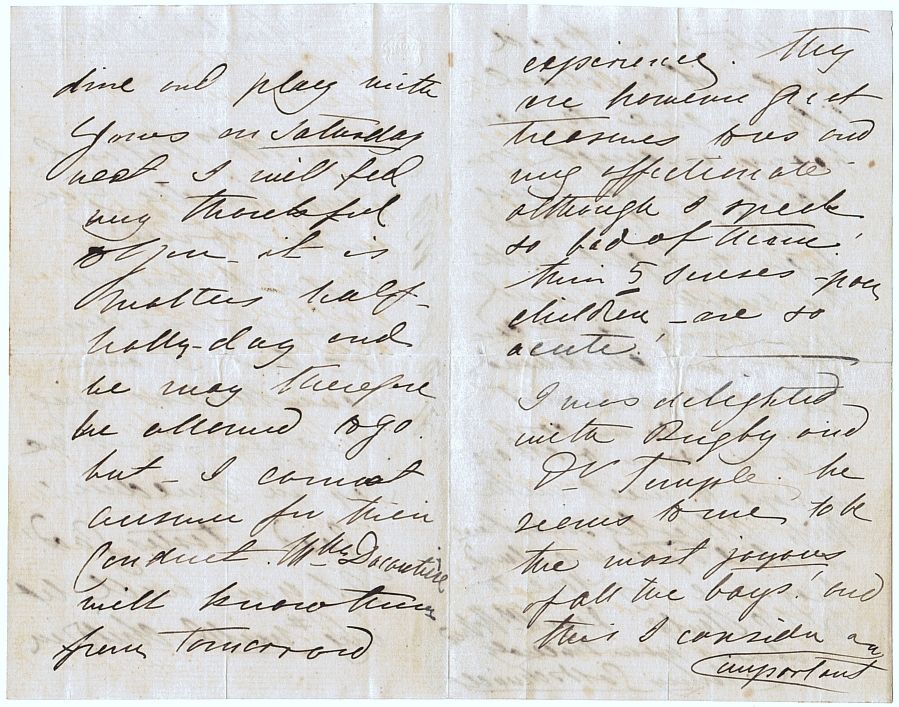 dine and play with
Yours on Saturday
next - I will feel
very thankful
to you - it is
Walter's half-
holly-day and
he may therefore
be allowed to go.
but - I cannot
answer for their
Conduct. Mlle
will know them
from Tomorrow
experience. They
are however great
treasures to us and
very affectionate
although I speak
so bad of them!
their 5 senses - poor
children - are so
acute!
I was delighted
with Rugby and
Dr Temple. he
seems to me to be
the most joyous
of all the boys! and
this I consider an
important